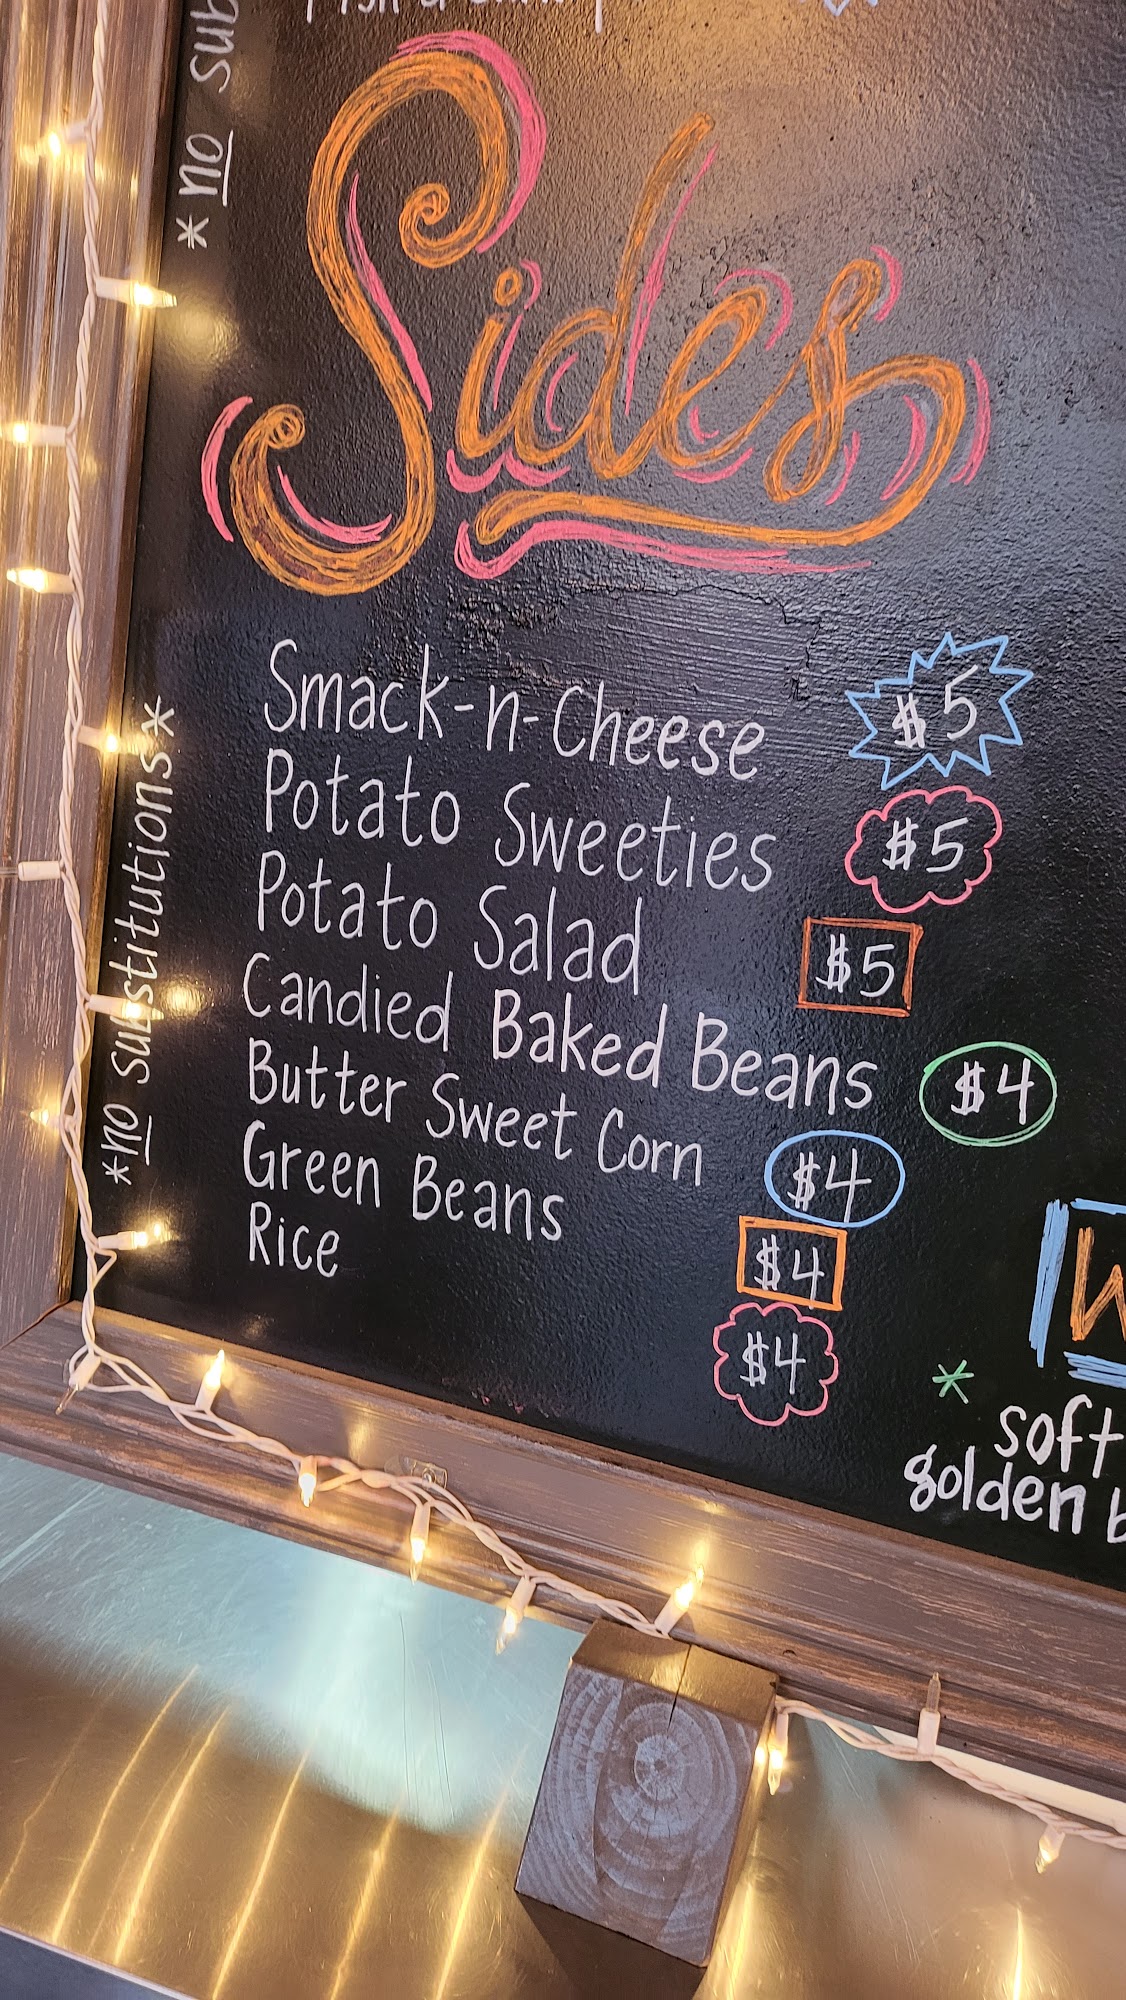 *no sub
Sides
Smack-n-Cheese $5
Potato Sweeties $5
Potato Salad $5
Candied Baked Beans $4
Butter Sweet Corn $4
Green Beans $4
Rice $4
*no substitutions*
*
soft
golden b